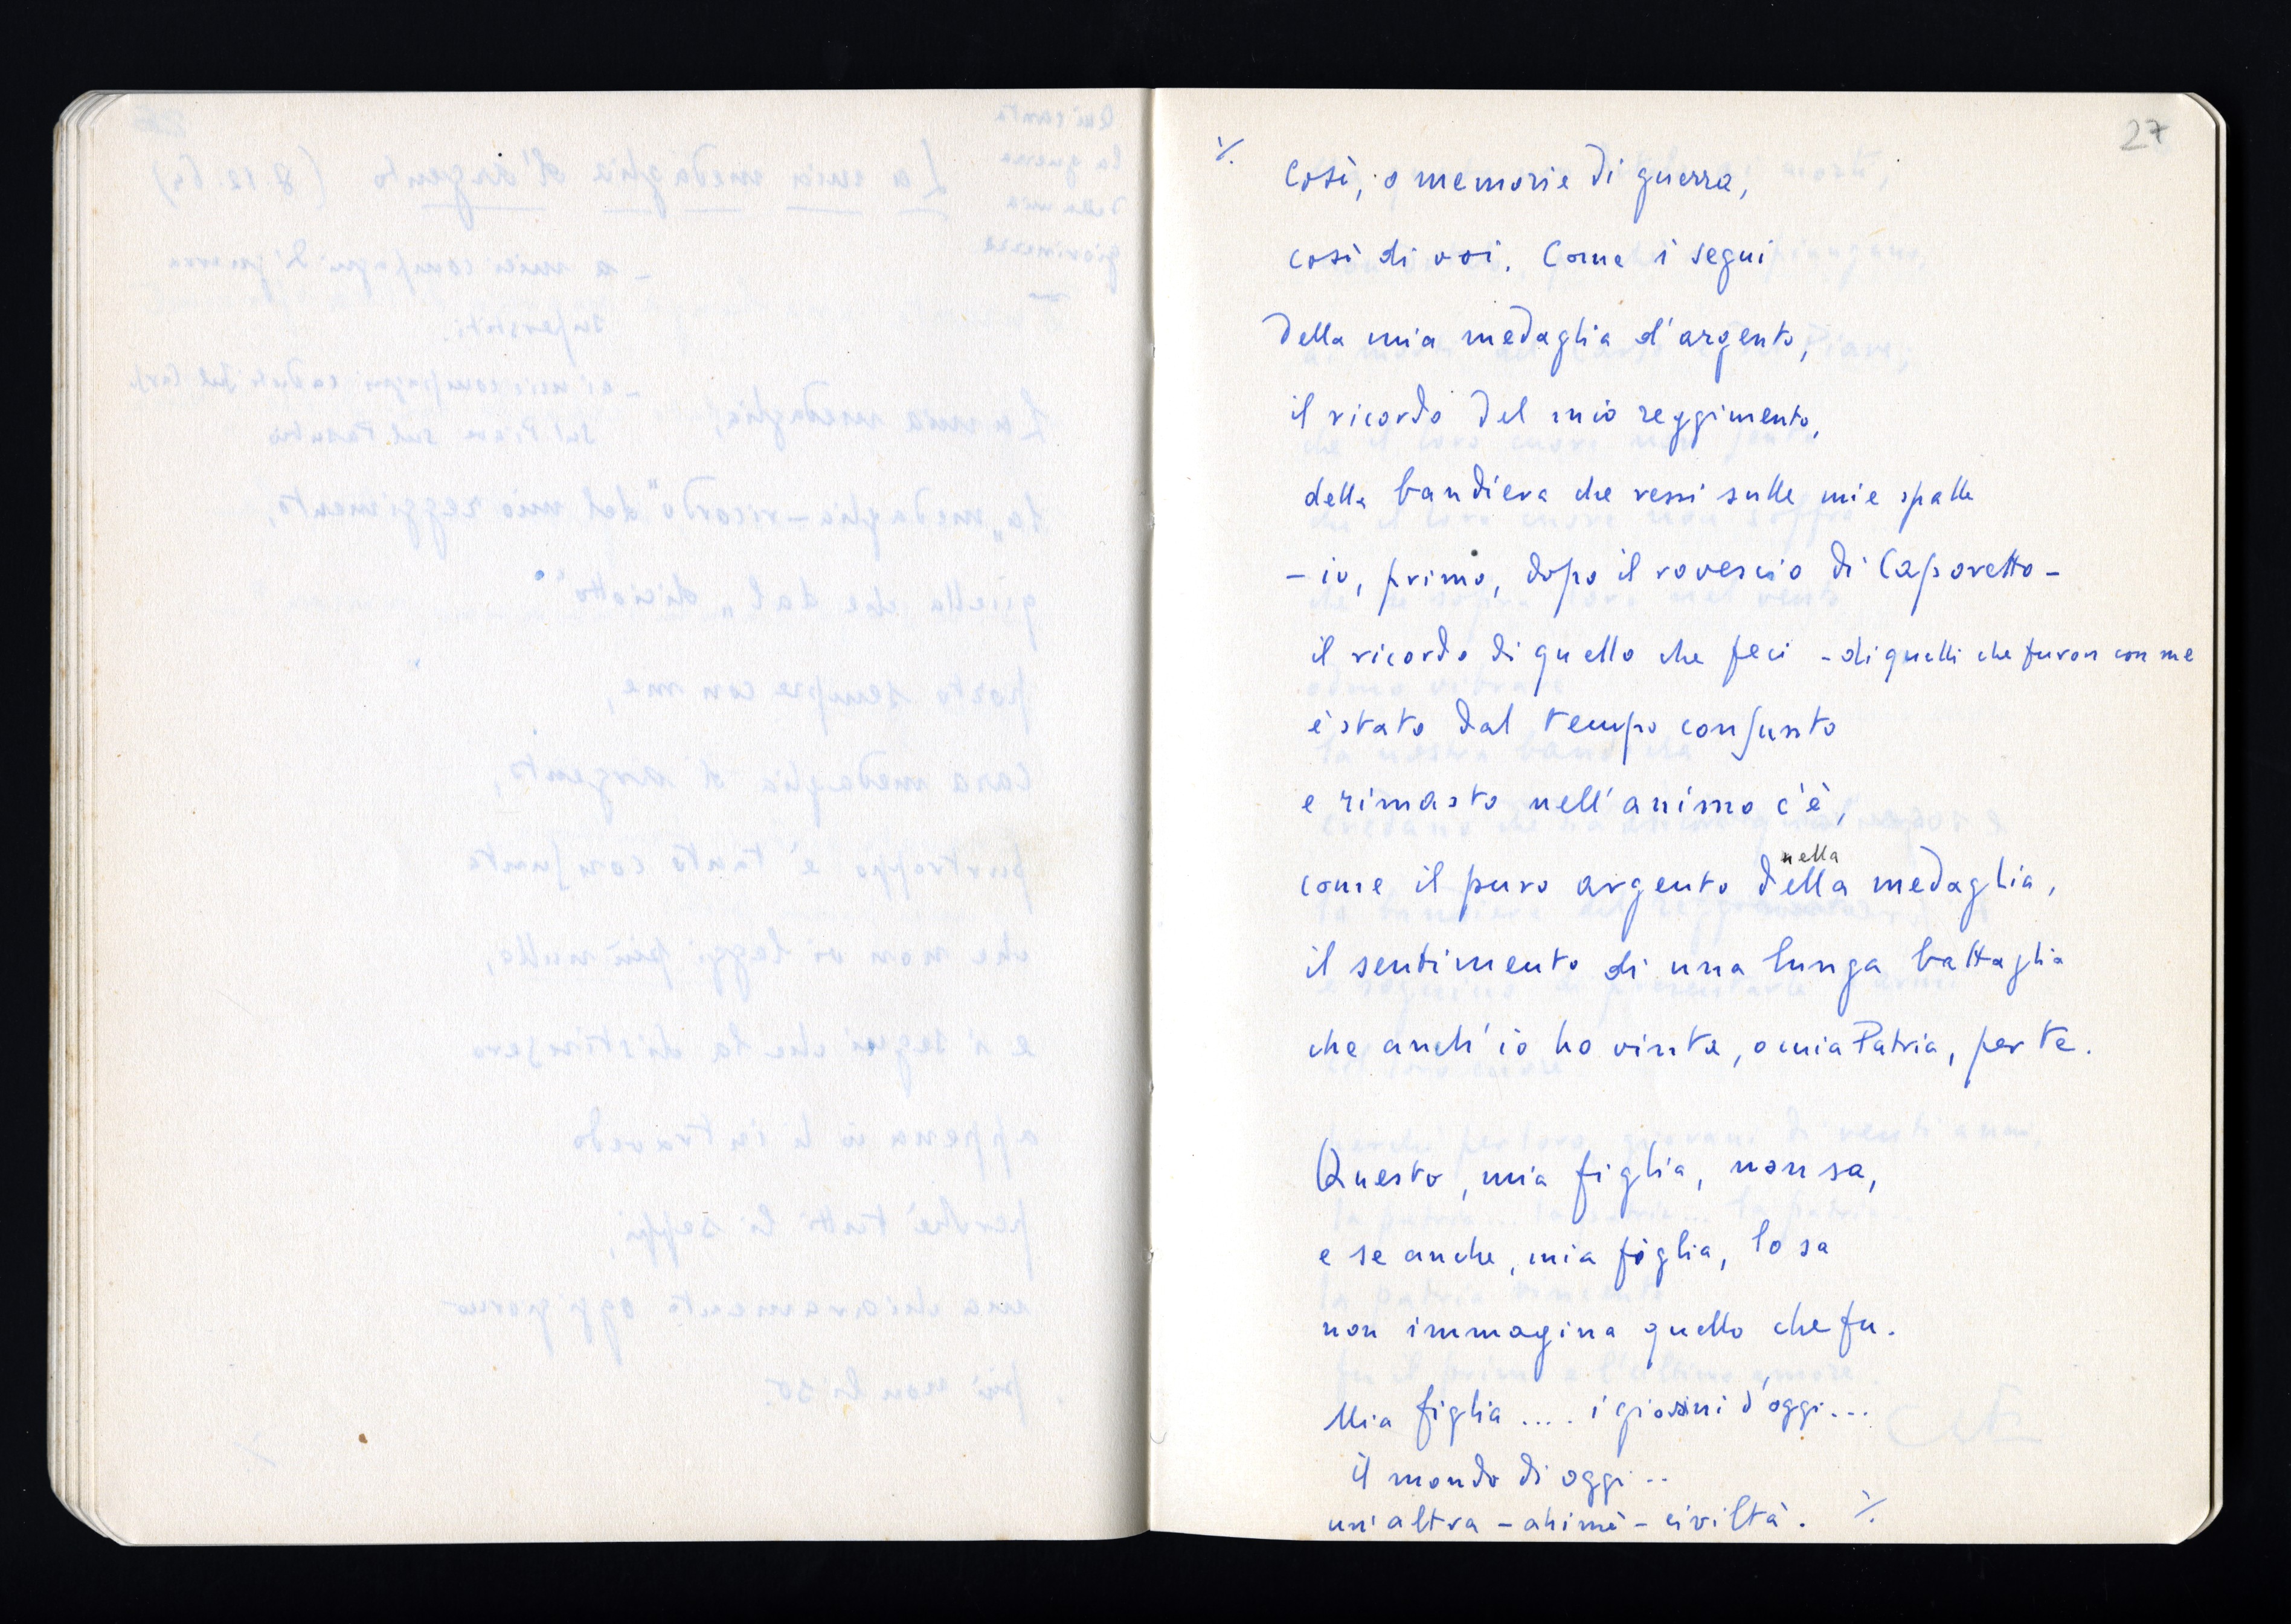 27
٪
Così, o memorie di guerra,
così di voi. Come i segni
della mia medaglia d'argento,
il ricordo del mio reggimento,
della bandiera che ressi sulle mie spalle
- io, primo, dopo il rovescio di Caporetto -
il ricordo di quello che feci - di quelli che furon con me
è stato dal tempo consunto
e rimasto nell'animo c'è,
nella
come il puro argento della medaglia,
il sentimento di una lunga battaglia
che anch'io ho vinta, o mia Patria, per te.
Questo, mia figlia, non sa,
e se anche, mia figlia, lo sa
non immagina quello che fu.
Mia figlia .... i giovani d'oggi...
il mondo di oggi..
un'altra - ahimè - civiltà. ٪